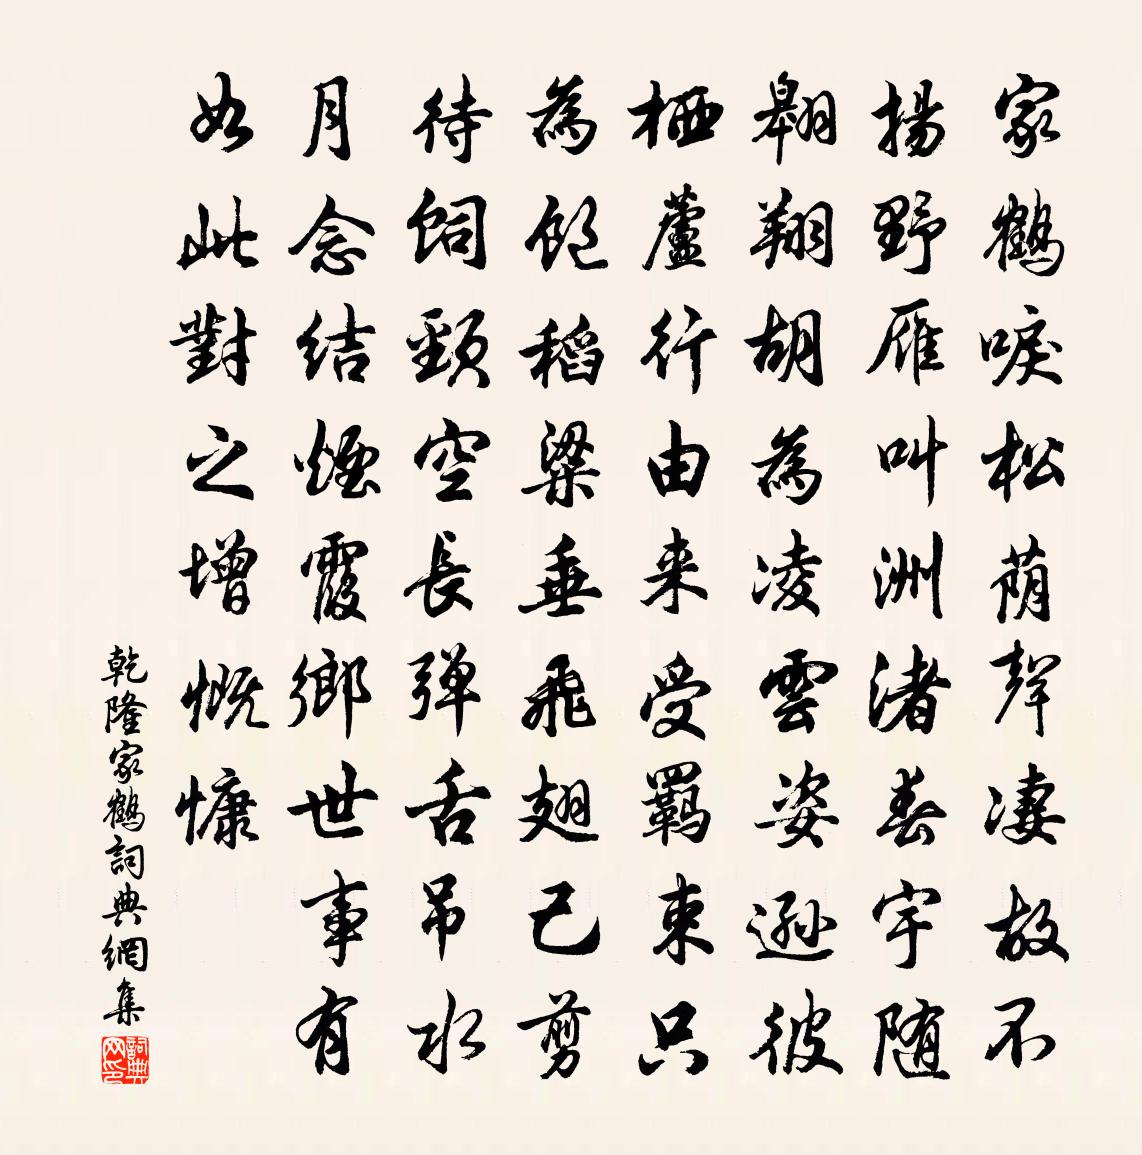 家鶴唳松荫聲凄故不
揚野雁叫洲渚春宇随
翱翔胡為凌雲姿遜彼
栖蘆行由来受羈束只
為飽稻粱垂飛翅已剪
待飼頸空長弹舌吊水
月念結煙霞鄉世事有
如此對之增慨慷
乾隆家鶴詞典網集
詞典网印